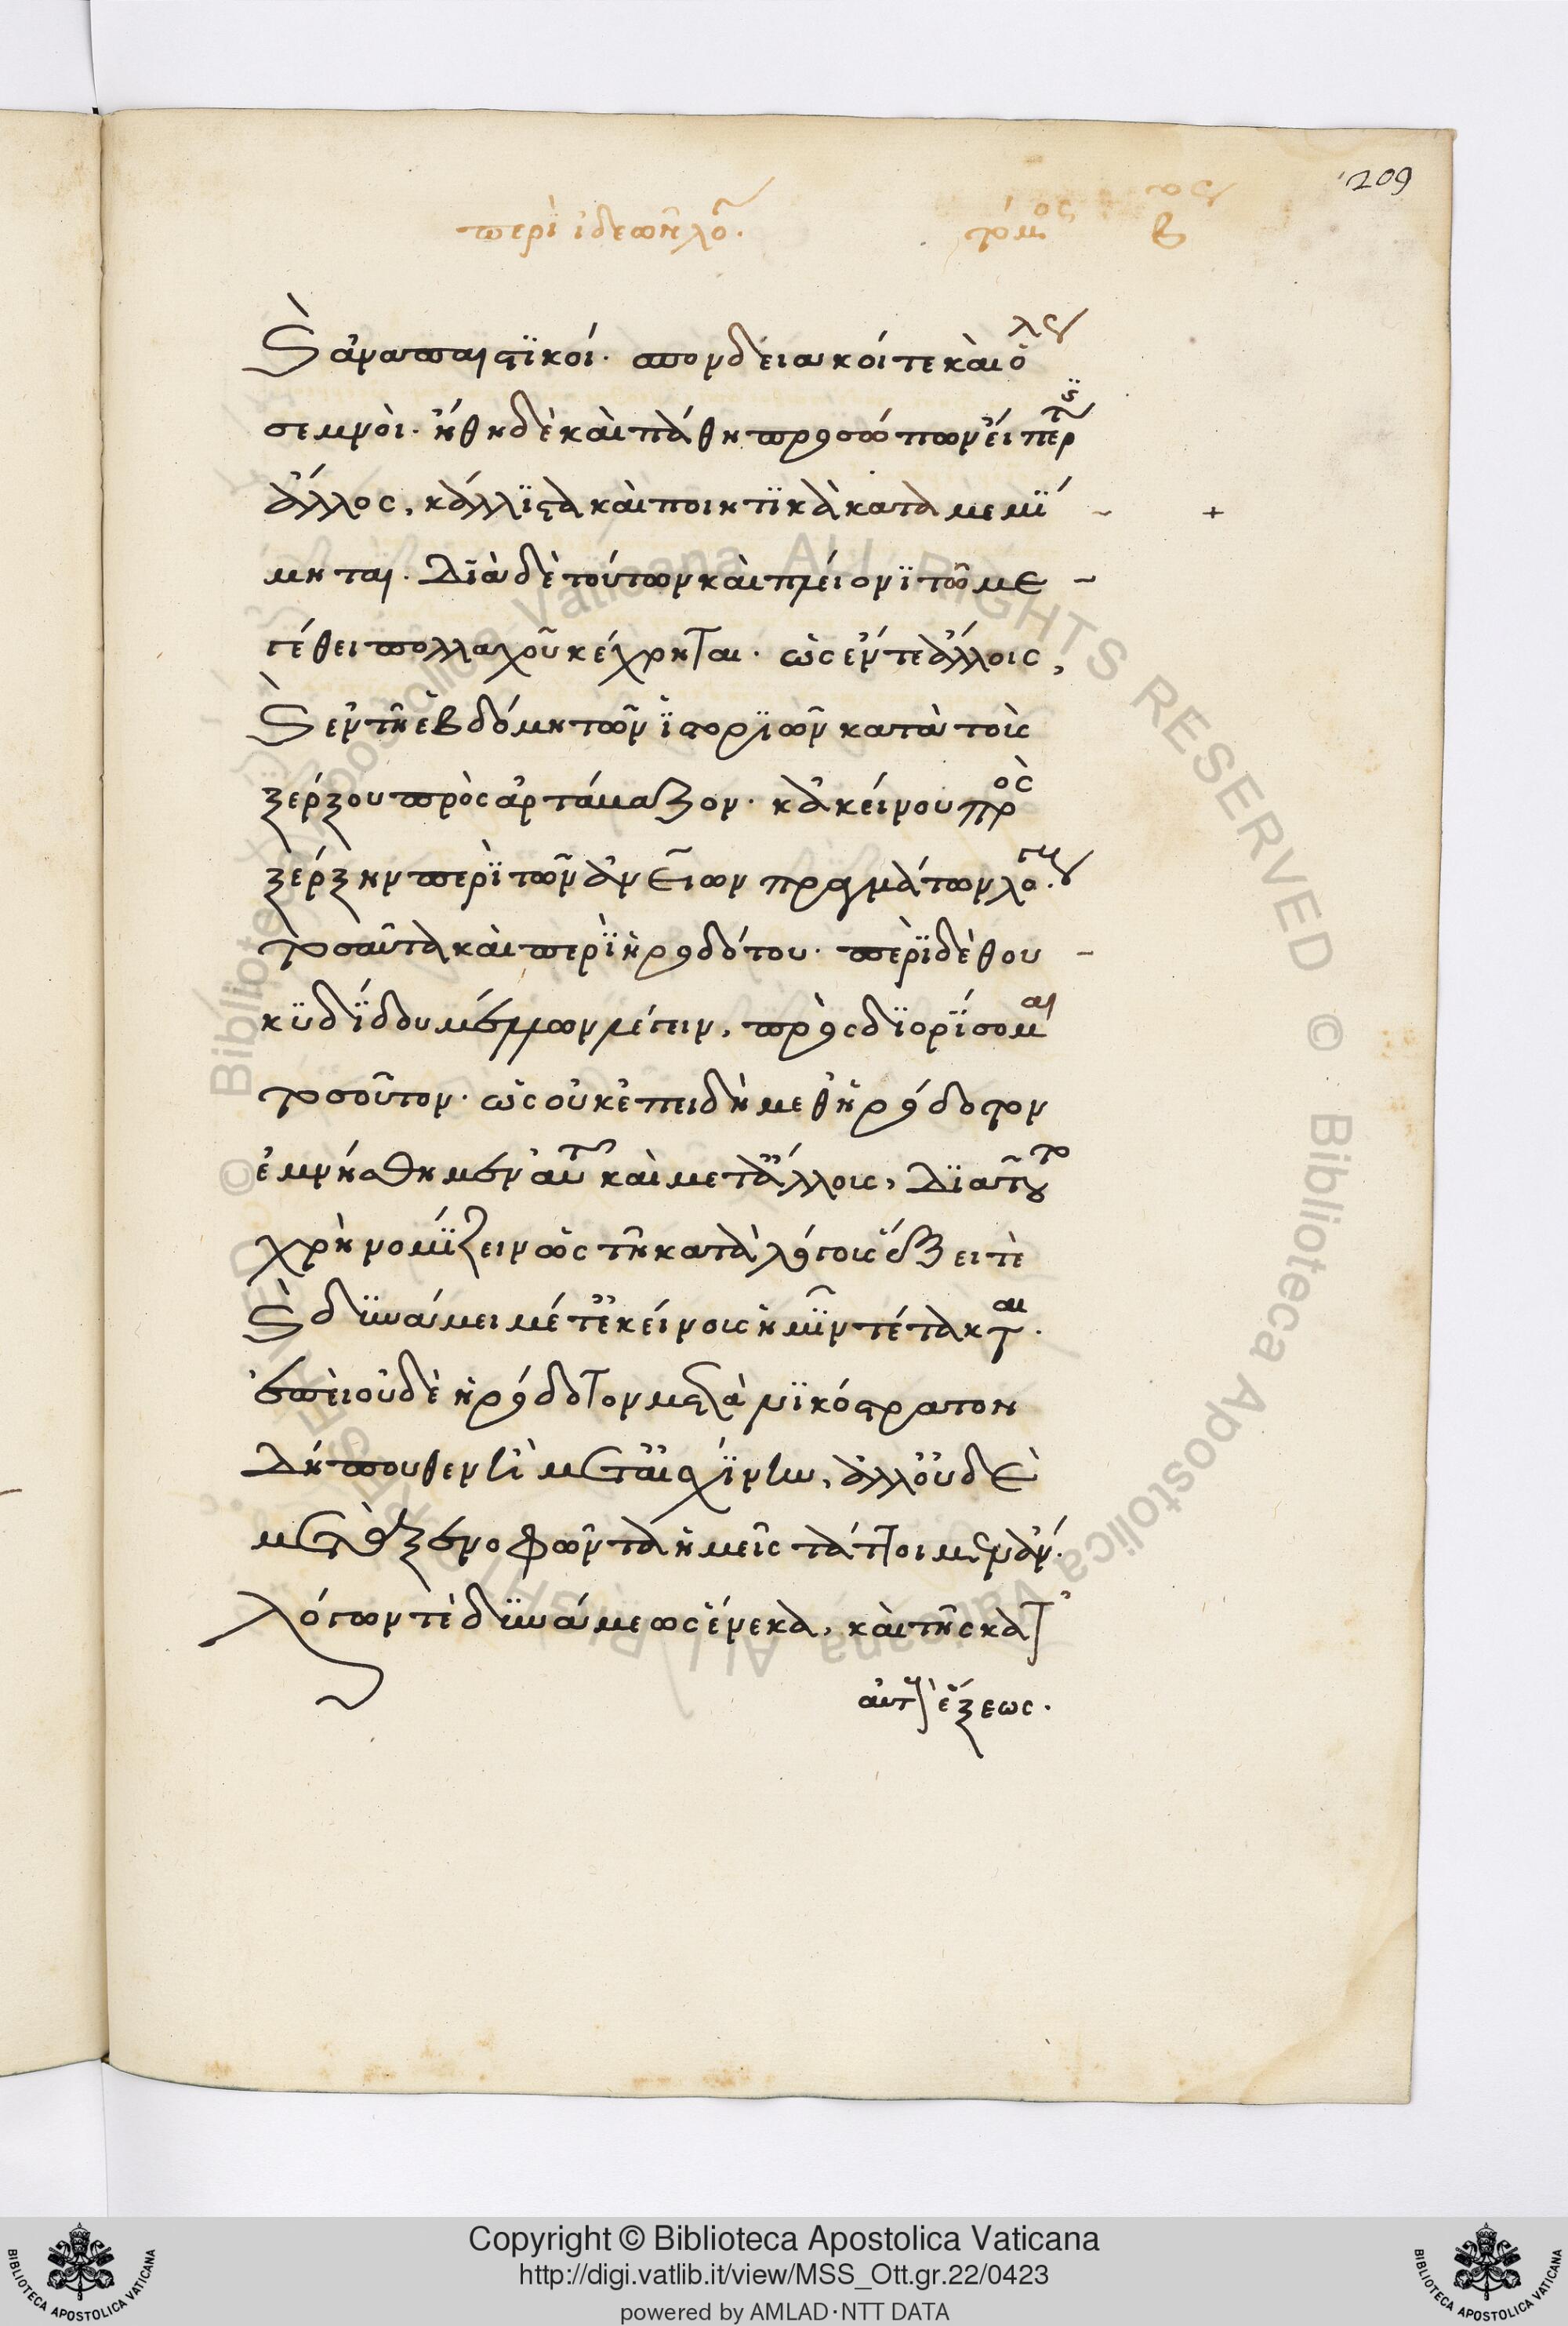 209
περὶ ἰδεῶν λό.
τόμος β
καὶ ἀναπαιστικοί. σπονδειακοί τε καὶ ὅλως
σεμνοί. ἤθη δὲ καὶ πάθη προσώπων εἴπερ τις
ἄλλος, κάλλιστα καὶ ποιητικὰ καταμεμί
μηται. Διὰ δὲ τούτων καὶ πλεῖον ἰ τῶ με
γέθει πολλαχοῦ κέχρηται. ὡς ἔν τε ἄλλοις,
καὶ ἐν τῆ ἑβδόμη τῶν ἱστοριῶν κατὰ τοὺς
ξέρξου πρὸς ἀρτάμαζον. κἀκείνου πρὸς
ξέρξην περὶ τῶν ἀνθείων πραγμάτων λόγους.
τοσαῦτα καὶ περὶ ἡροδότου. περὶ δὲ θου
κυδίδου μέλλων λέγειν, προσδιορίσομαι
τοσοῦτον. ὡς οὐκ ἐπειδὴ μεθ' ἡρόδοτον
ἐμνήσθημεν αὐτοῦ καὶ μετ' ἄλλους, Διὰ τοῦτο
χρὴ νομίζειν ὡς τῆ κατὰ λόγους ἕξει τὲ
καὶ δυνάμει μετ' ἐκείνους ἡμῖν τέτακται.
ἐπεὶ οὐδὲ ἡρόδοτον μετὰ νικόστρατον
Δήπουθεν ἢ μετ' αἰσχίνην, ἀλλ' οὐδὲ
μετὰ ξενοφῶντα ἡμεῖς τάττοιμεν ἄν.
λόγων τὲ δυνάμεως ἕνεκα, καὶ τῆς κατ'
αὐτοὺς ἕξεως.
Copyright © Biblioteca Apostolica Vaticana
http://digi.vatlib.it/view/MSS_Ott.gr.22/0423
powered by AMLAD·NTT DATA
BIBLIOTECA APOSTOLICA VATICANA
BIBLIOTECA APOSTOLICA VATICANA